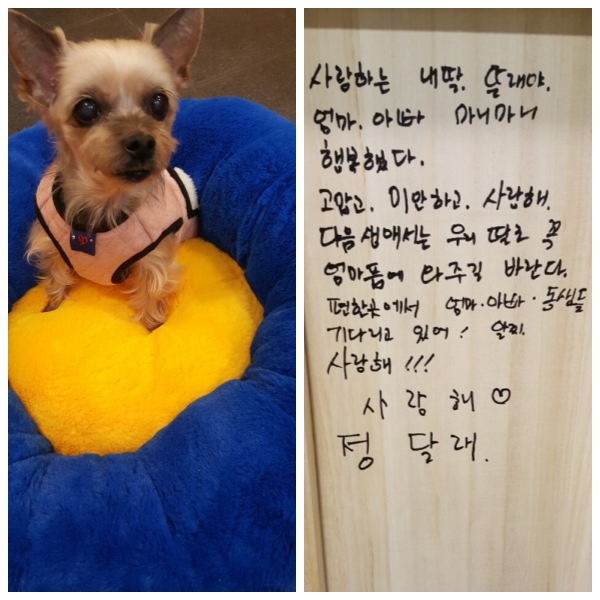 사랑하는 내딸. 달래야.
엄마. 아빠 마니마니
행복했다.
고맙고. 미안하고. 사랑해.
다음생애서는 우리 딸로 꼭
엄마품에 와주길 바란다.
편한곳에서 엄마.아빠.동생들
기다리고 있어! 알찌.
사랑해!!!
사랑해♡
정달래.